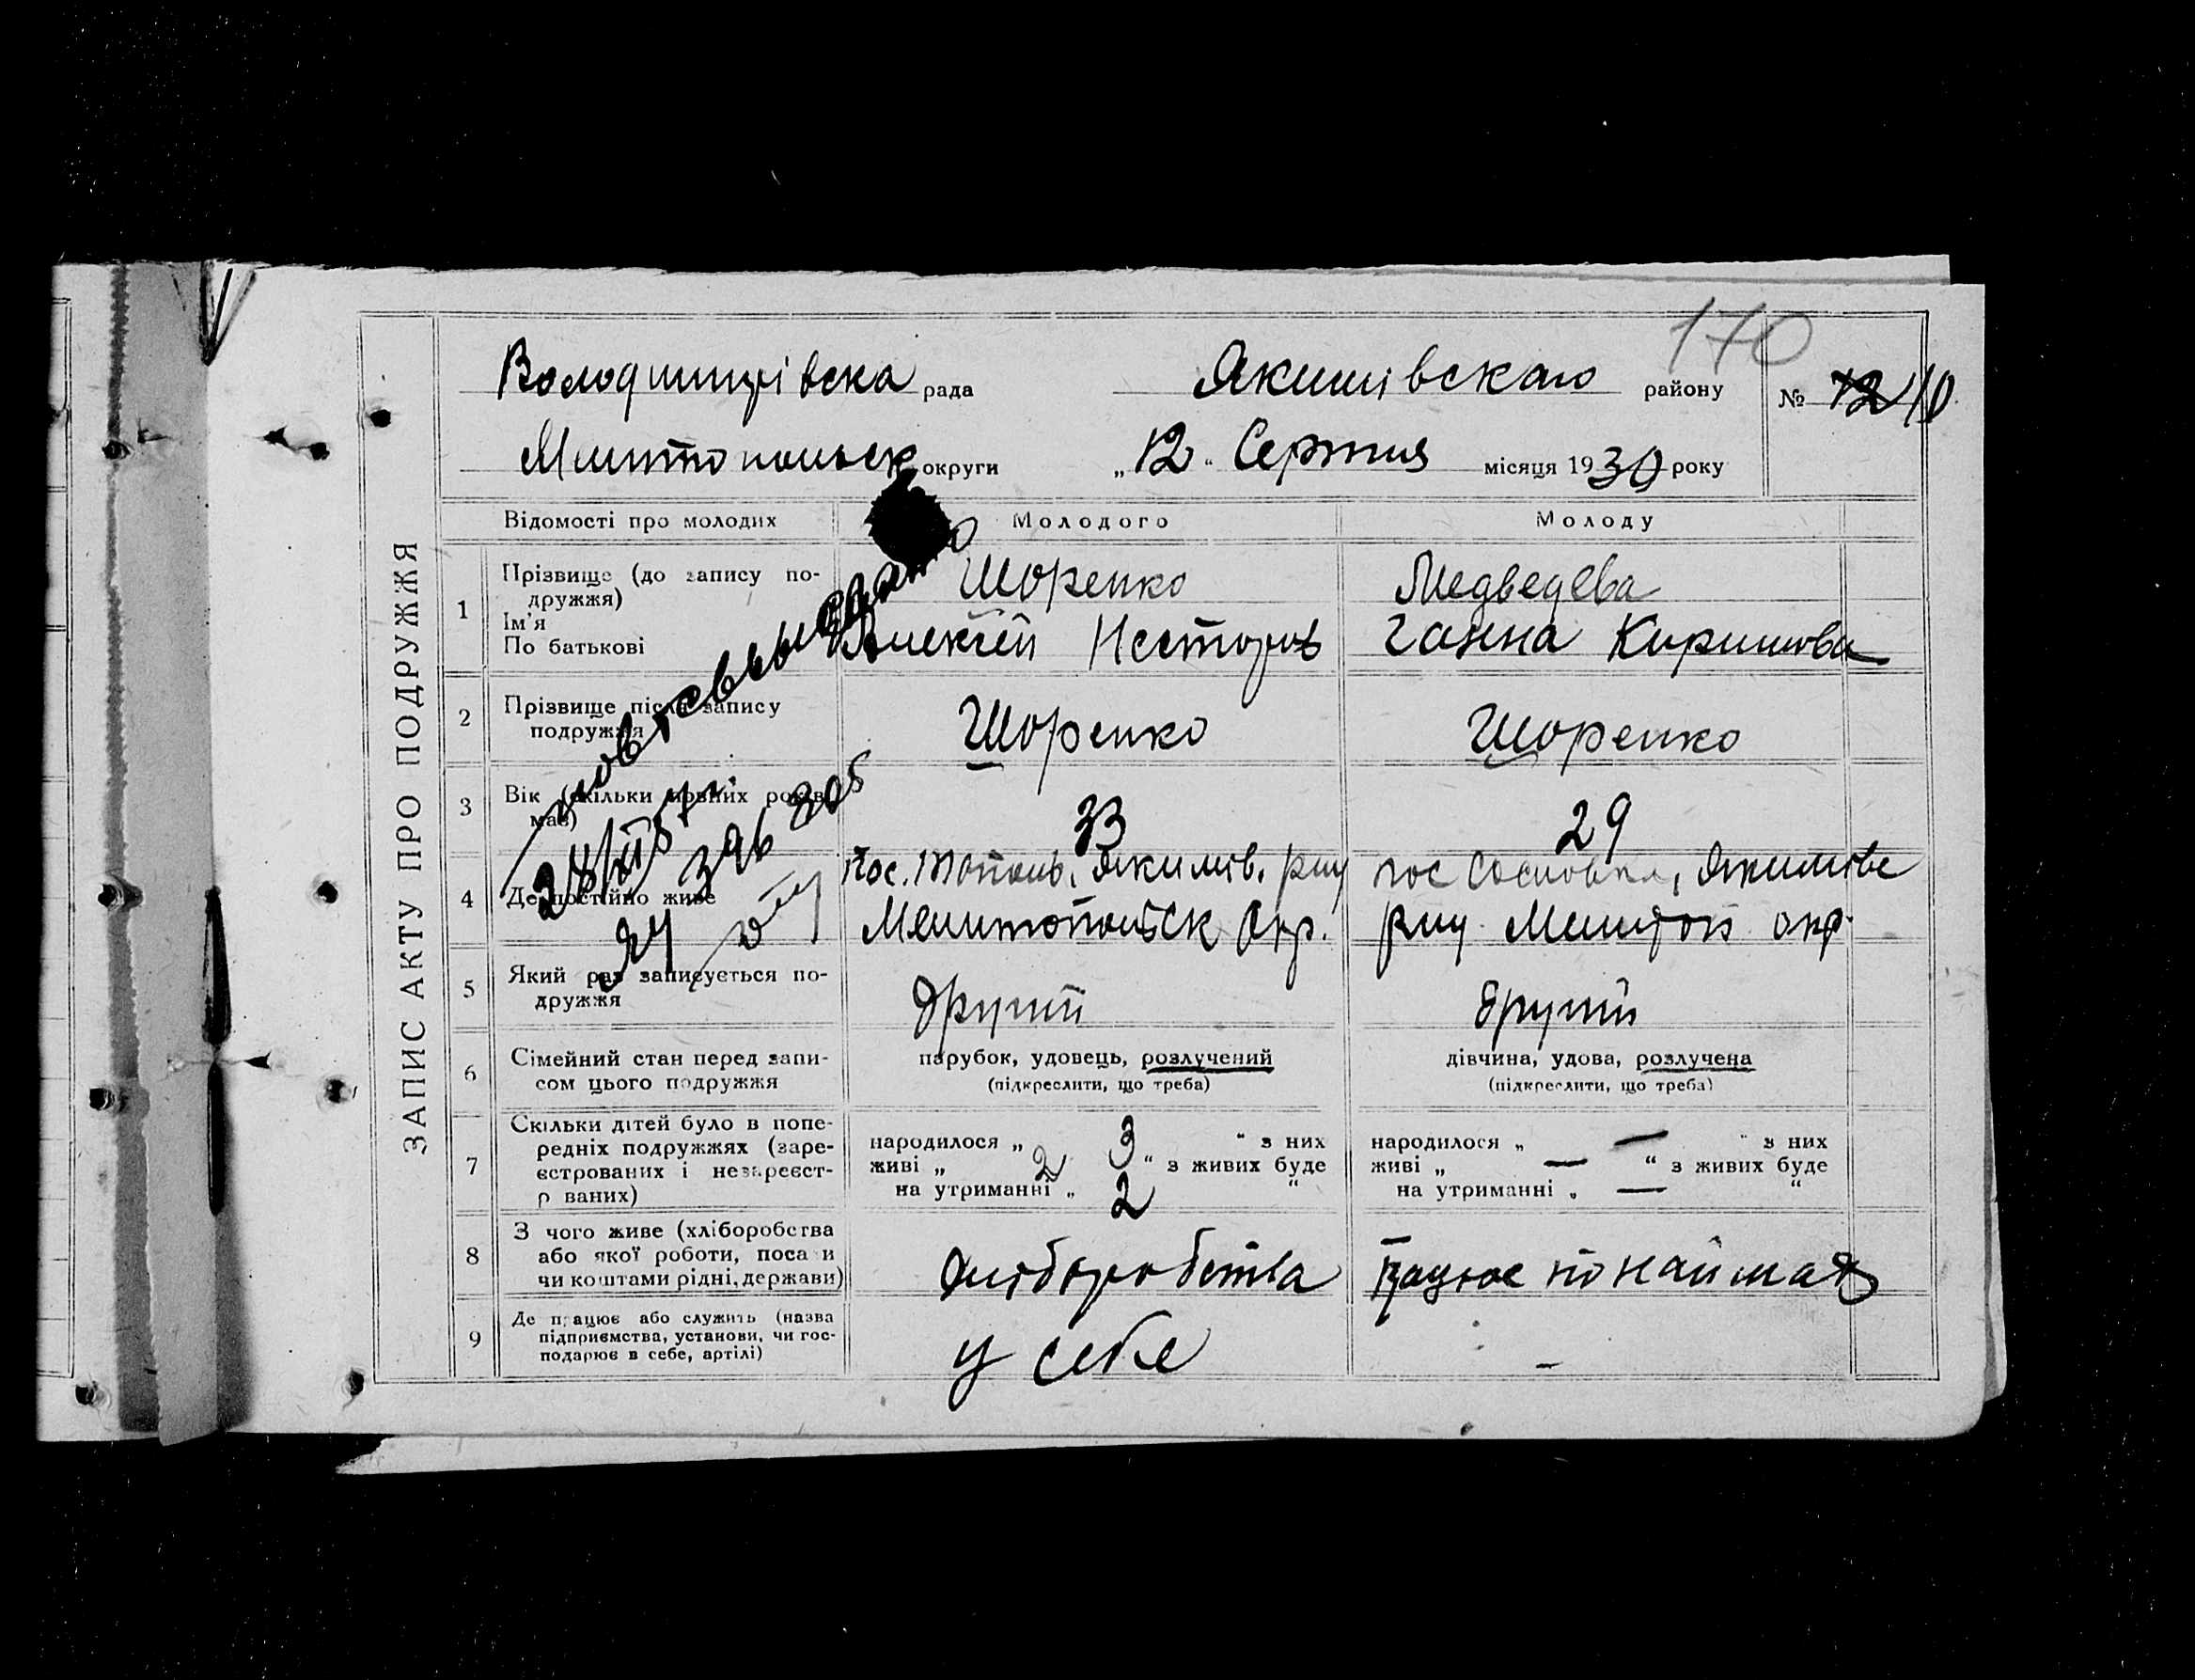 170
Володимирівска рада Якимівскаго району № 12 10
Мелитопольск округи „12“ Серпня місяця 1930 року
ЗАПИС АКТУ ПРО ПОДРУЖЖЯ
Відомості про молодих Молодого Молоду
1 Прізвище (до запису по-
дружжя)
Ім'я
По батькові
Шоренко
Алексій Несторов
Медведева
Ганна Кирилова
2 Прізвище після запису
подружжя
Шоренко Шоренко
3 Вік (скільки повних років
має)
33 29
4 Де постійно живе
пос. Тополь, Якимів. рну
Мелитопольск Окр.
пос Сосновка, Якимівс
рну Мелитоп окр.
5 Який раз записується по-
дружжя
другий другий
6 Сімейний стан перед запи-
сом цього подружжя
парубок, удовець, розлучений
(підкреслити, що треба)
дівчина, удова, розлучена
(підкреслити, що треба)
7 Скільки дітей було в попе-
редніх подружжях (заре-
єстрованих і незареєст-
р ваних)
народилося „ 3 “ з них
живі „ 2 “ з живих буде
на утриманні „ 2 “
народилося „ — “ з них
живі „ — “ з живих буде
на утриманні „ — “
8 З чого живе (хліборобства
або якої роботи, поса и
чи коштами рідні, держави)
Хліборобства працює по наймах
9 Де працює або служить (назва
підприємства, установи, чи гос-
подарює в себе, артілі)
у себе –